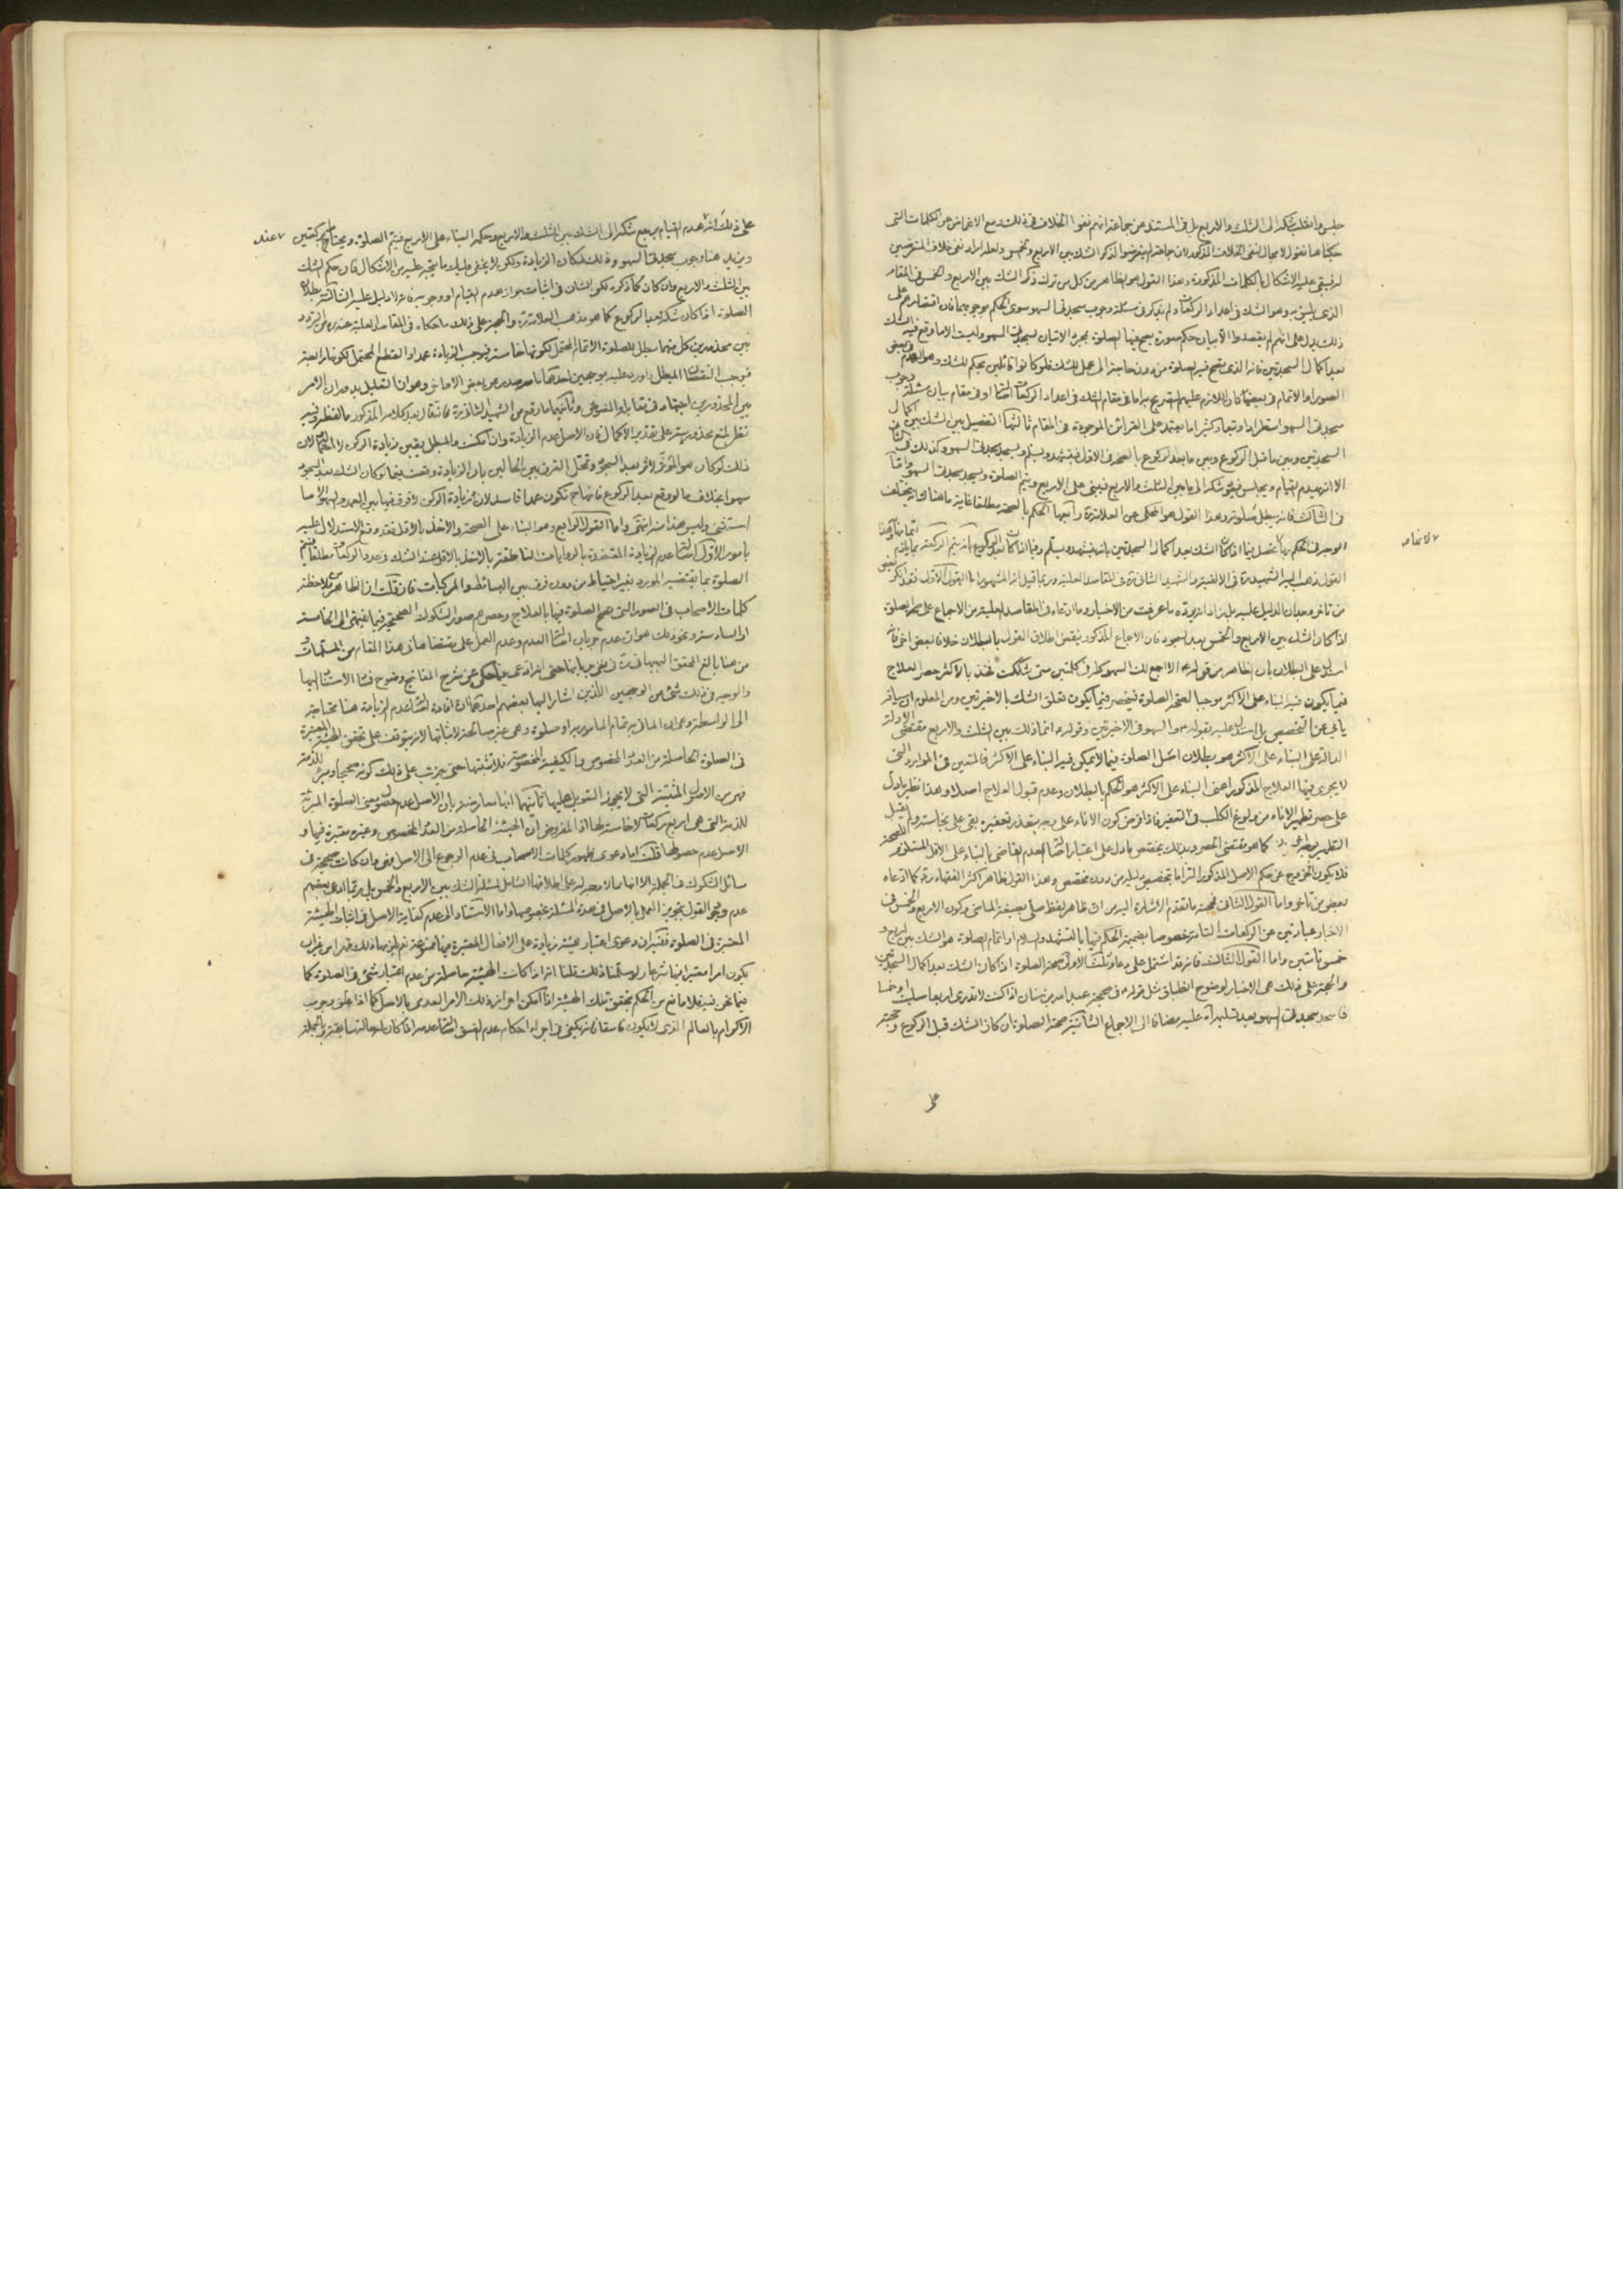 جلس وانقلب شكه الى الثلث والاربع بل في المستند عن جماعة انهم نفوا الخلاف في ذلك مع الاغماض عن الكلمات التى
حكيناها نقول لا مجال لنفى الخلاف المذكور لان جماعة لم يتعرضوا لذكر الشك بين الاربع والخمس ولعله اراد نفى خلاف المتعرضين
له فيبقى عليه الاشكال بالكلمات المذكورة وهذا القول هو الظاهر من كل من ترك ذكر الشك بين الاربع والخمس في المقام
الذى يليق به وهو الشك في اعداد الركعات ولم يذكر في مسئلة وجوب سجدتى السهو سوى الحكم بوجوبهما فان اقتصارهم على
ذلك يدل على انهم لم يقصدوا الا بيان حكم صورة يصح فيها الصلوة بمجرد الاتيان بسجدتى السهو وليست الا ما وقع فيه الشك
بعد اكمال السجدتين فانه الذى تصح فيه الصلوة من دون حاجة الى عمل للشك فلو كانوا قائلين بحكم للشك وهو الهدم في بعض
الصور او الاتمام في بعضها كان اللازم عليهم التصريح به اما في مقام الشك في اعداد الركعات او في مقام بيان مسئلة وجوب
سجدتى السهو استطرادا وتبعا وكثيرا ما يعتمد على القرائن الموجودة في المقام ثالثها التفصيل بين الشك بين اكمال
السجدتين وبين ما قبل الركوع وبين ما بعد الركوع بالصحة في الاول فيتشهد ويسلم ويسجد سجدتى السهو وكذلك في الثانى
الا انه يهدم القيام ويجلس فيعود شكه الى ما بين الثلث والاربع فيبنى على الاربع ويتم الصلوة ويسجد سجدتى السهو واما
في الثالث فانه يبطل صلوته وهذا القول هو المحكى عن العلامة ره رابعها الحكم بالصحة مطلقا غاية ما هناك انه يختلف
الوجه في الحكم بها فيما اذا كان الشك بعد اكمال السجدتين بانه يتشهد ويسلم وفيما اذا كان بعد الركوع بانه يتم الركعة
القول ذهب اليه الشهيد ره في الالفية والشهيد الثانى ره في المقاصد العلية وربما قيل انه المشهور اما القول الاول فقد ذكر
من تأخر وجدان الدليل عليه بل زاد انه يرده ما عرفت من الاخبار وما ادعاه في المقاصد العلية من الاجماع على الصلوة
اذا كان الشك بين الاربع والخمس بعد السجود فان الاجماع المذكور ينقض اطلاق القول بالبطلان خلافا لبعض اخر فانه
استدل على البطلان بان الظاهر من قوله ع الا اجمع لك السهو كله في كلمتين متى شككت فخذ بالاكثر حصر العلاج
فيما يكون فيه البناء على الاكثر موجبا لصحة الصلوة فينحصر فيما يكون تعلق الشك بالاخيرتين ومن المعلوم ان سياقه
يأبى عن التخصيص بل استدل عليه بقوله ع انما السهو في الاخيرتين وقوله ع انما ذلك بين الثلث والاربع مقتضى الادلة
الدالة على البناء على الاكثر هو بطلان اصل الصلوة فيما لا يمكن فيه البناء على الاكثر فالمتعين في الموارد التى
لا يجرى فيها العلاج المذكور اعنى البناء على الاكثر هو الحكم بالبطلان وعدم قبول العلاج اصلا وهذا نظير ما دل
على حصر تطهير الاناء من ولوغ الكلب في التعفير فاذا فرض كون الاناء على وجه يتعذر تعفيره بقى على نجاسته ولم يقبل
التطهير بغيره كما هو مقتضى الحصر وبذلك يخصص ما دل على اعتبار اصالة العدم القاضى بالبناء على الاقل المستلزم للصحة
فلا يكون الخروج عن حكم الاصل المذكور التزاما بتخصيص دليله من دون مخصص وهذا القول ظاهر اكثر الفقهاء ره كما ادعاه
بعض من تأخر واما القول الثانى فحجته ما تقدم الاشارة اليه من ان ظاهر لفظ صلى بصيغة الماضى وكون الاربع والخمس في
الاخبار عبارتين عن الركعات التامة خصوصا بضميمة الحكم فيها بالتشهد والسلام او اتمام الصلوة هو الشك بين اربع و
خمس تامتين واما القول الثالث فانه قد اشتمل على دعاوى ثلث الاولى صحة الصلوة اذا كان الشك بعد اكمال السجدتين
والحجة على ذلك هى الاخبار لوضوح انطباق مثل قوله ع في صحيحة عبد الله بن سنان اذا كنت لا تدرى اربعا صليت او خمسا
فاسجد سجدتى السهو بعد تسليمك عليه مضافا الى الاجماع الثانية صحة الصلوة ان كان الشك قبل الركوع وحجته
على
على ذلك انه بهدم القيام يرجع شكه الى الشك بين الثلث والاربع وحكمه البناء على الاربع فيتم الصلوة ويحتاط بركعتين
ويزيد هنا وجوب سجدتى السهو وذلك لمكان الزيادة ولكن لا يخفى عليك ما يتجه عليه من الاشكال فان حكم الشك
بين الثلث والاربع وان كان كما ذكره لكن الشان في اثبات جواز هدم القيام او وجوبه فانه لا دليل عليه الثالثة بطلان
الصلوة اذا كان شكه بعد الركوع كما هو مذهب العلامة ره والحجة على ذلك ما حكاه في المقاصد العلية عنه ره من التردد
بين محذورين كل منهما مبطل للصلوة الاتمام المحتمل لكونها خامسة فيوجب الزيادة عمدا والقطع المحتمل لكونها رابعة
فيوجب النقصان المبطل واورد عليه بوجهين احدهما ما صدر من بعض الاماخر وهو ان التعليل بدوران الامر
بين المحذورين اجتهاد في مقابل النص وثانيهما ما وقع من الشهيد الثانى ره فانه قال بعد كلامه المذكور ما لفظه وفيه
نظر لمنع محذوريته على تقدير الاكمال فان الاصل عدم الزيادة وان امكنت والمبطل يقين زيادة الركن لا احتمالها لان
ذلك لو كان هو المؤثر لاثر بعد السجود وتخيل الفرق بين الحالين بان الزيادة وقعت فيما لو كان الشك بعد السجود
سهوا بخلاف ما لو وقع بعد الركوع فانها ح تكون عمدا فاسد لان زيادة الركن لا فرق فيها بين العمد والسهو الا ما
استثنى وليس هذا منه انتهى واما القول الرابع وهو البناء على الصحة والاخذ بالاقل فقد وقع الاستدلال عليه
بامور الاول اصالة عدم الزيادة المعتضدة بالروايات الناطقة بالاخذ بالاقل عند الشك في عدد الركعات مطلقا فيتم
الصلوة بما يقتضيه المورد بغير احتياط من دون فرق بين البسائط والمركبات فان قلت ان الظاهر من ملاحظة
كلمات الاصحاب في الصور التى تصح الصلوة فيها بالعلاج وحصرهم صور الشكوك الصحيحة فيما لا ينتهى الى الخامسة
او السادسة ونحو ذلك هو ان عدم جريان اصالة العدم وعدم العمل على مقتضاها في هذا المقام من المسلمات و
من هنا بالغ المحقق البهبهانى ره في نفى جريانها حتى انه ادعى فيما حكى عن شرح المفاتيح وضوح فساد الاستناد اليها
والوجه في ذلك شىء من الوجهين اللذين اشار اليهما بعضهم احدهما ان افادة اصالة عدم الزيادة هنا محتاجة
الى الواسطة وهى ان الماتى به تمام المامور به او صلوة وهى غير صالحة لاثباتها لانه يتوقف على تحقق الهيئة المعتبرة
في الصلوة الحاصلة من العدد المخصوص والكيفية المخصوصة فلا تثبتها حتى يترتب على ذلك كونه صحيحا ومبرئا للذمة
فهى من الاصول المثبتة التى لا يجوز التعويل عليها ثانيهما انها معارضة بان الاصل عدم حصول معنى الصلوة المبرئة
للذمة التى هى اربع ركعات لا خامسة لها اذ المفروض ان الهيئة الحاصلة من العدد المخصوص وغيره معتبرة فيها و
الاصل عدم حصولها قلت اما دعوى ظهور كلمات الاصحاب في عدم الرجوع الى الاصل فهى وان كانت صحيحة في
مسائل الشكوك في الجملة الا انها مما لا وجه له على اطلاقها الشامل لمسئلة الشك بين الاربع والخمس بل ربما ادعى بعضهم
عدم وجود القول بتجويز العمل بالاصل في هذه المسئلة بخصوصها واما الاستناد الى عدم كفاية الاصل في اثبات الهيئة
المعتبرة في الصلوة فنقول ان دعوى اعتبار هيئة زيادة على الافعال المعتبرة فيها ممنوعة نعم لزمها ذلك قهرا من غير ان
يكون امرا معتبرا فيها شرعا ولو سلمنا ذلك قلنا انه اذا كانت الهيئة حاصلة من عدم اعتبار شىء في الصلوة كما
فيما نحن فيه فلا مانع من الحكم بتحقق تلك الهيئة اذا امكن احراز ذلك الامر العدمى بالاصل كما اذا علق وجوب
الاكرام بالعالم الذى لا يكون فاسقا فانه يكفى في اجراء احكام عدم الفسق اصالة عدمه اذا كان له حالة سابقة وبالجملة